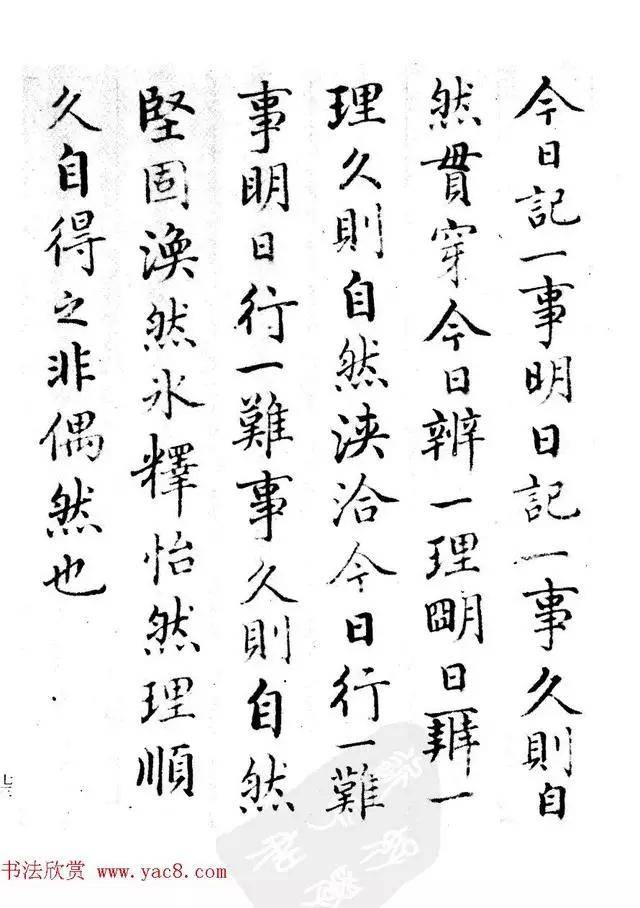 今日記一事明日記一事久則自
然貫穿今日辨一理明日辨一
理久則自然浹洽今日行一難
事明日行一難事久則自然
堅固渙然氷釋怡然理順
久自得之非偶然也
七三
书法欣赏 www.yac8.com